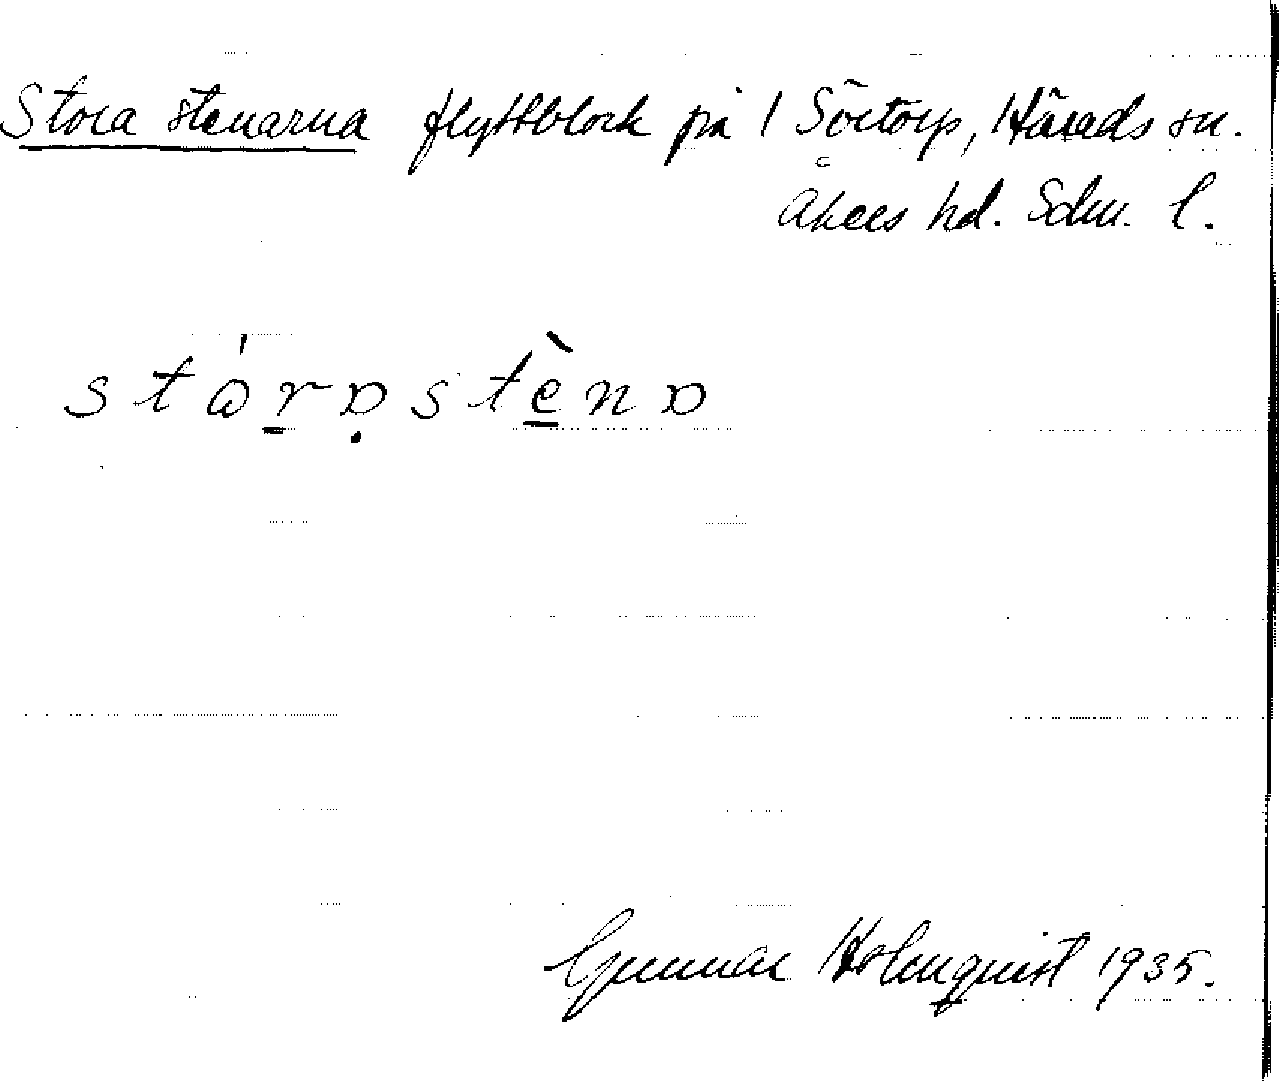 Stora stenarna flyttblock på 1 Sörtorp, Härads sn.
Åkers hd. Sdm. l.
stårɒstènɒ
Gunnar Holmquist 1935.